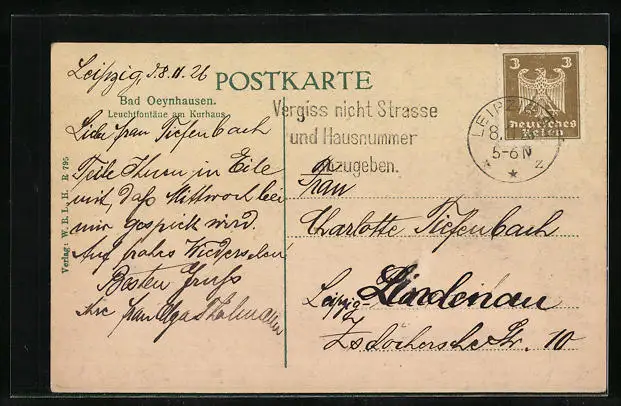 Leipzig, d. 8.11.26
POSTKARTE
Bad Oeynhausen.
Leuchtfontäne am Kurhaus.
Liebe Frau Tiefenbach
Teile Ihnen in Eile
mit, daß Mittwoch bei
mir gespielt wird.
Auf frohes Wiedersehen
Besten Gruß
Ihre Frau Olga
Verlag: W. R. L. H. R 795
Vergiss nicht Strasse
und Hausnummer
anzugeben.
3 3
Deutsches
Reich
LEIPZIG
8.
5-6 N
* 2
*
Frau
Charlotte Tiefenbach
Leipzig-Lindenau
Zschochersche Str. 10